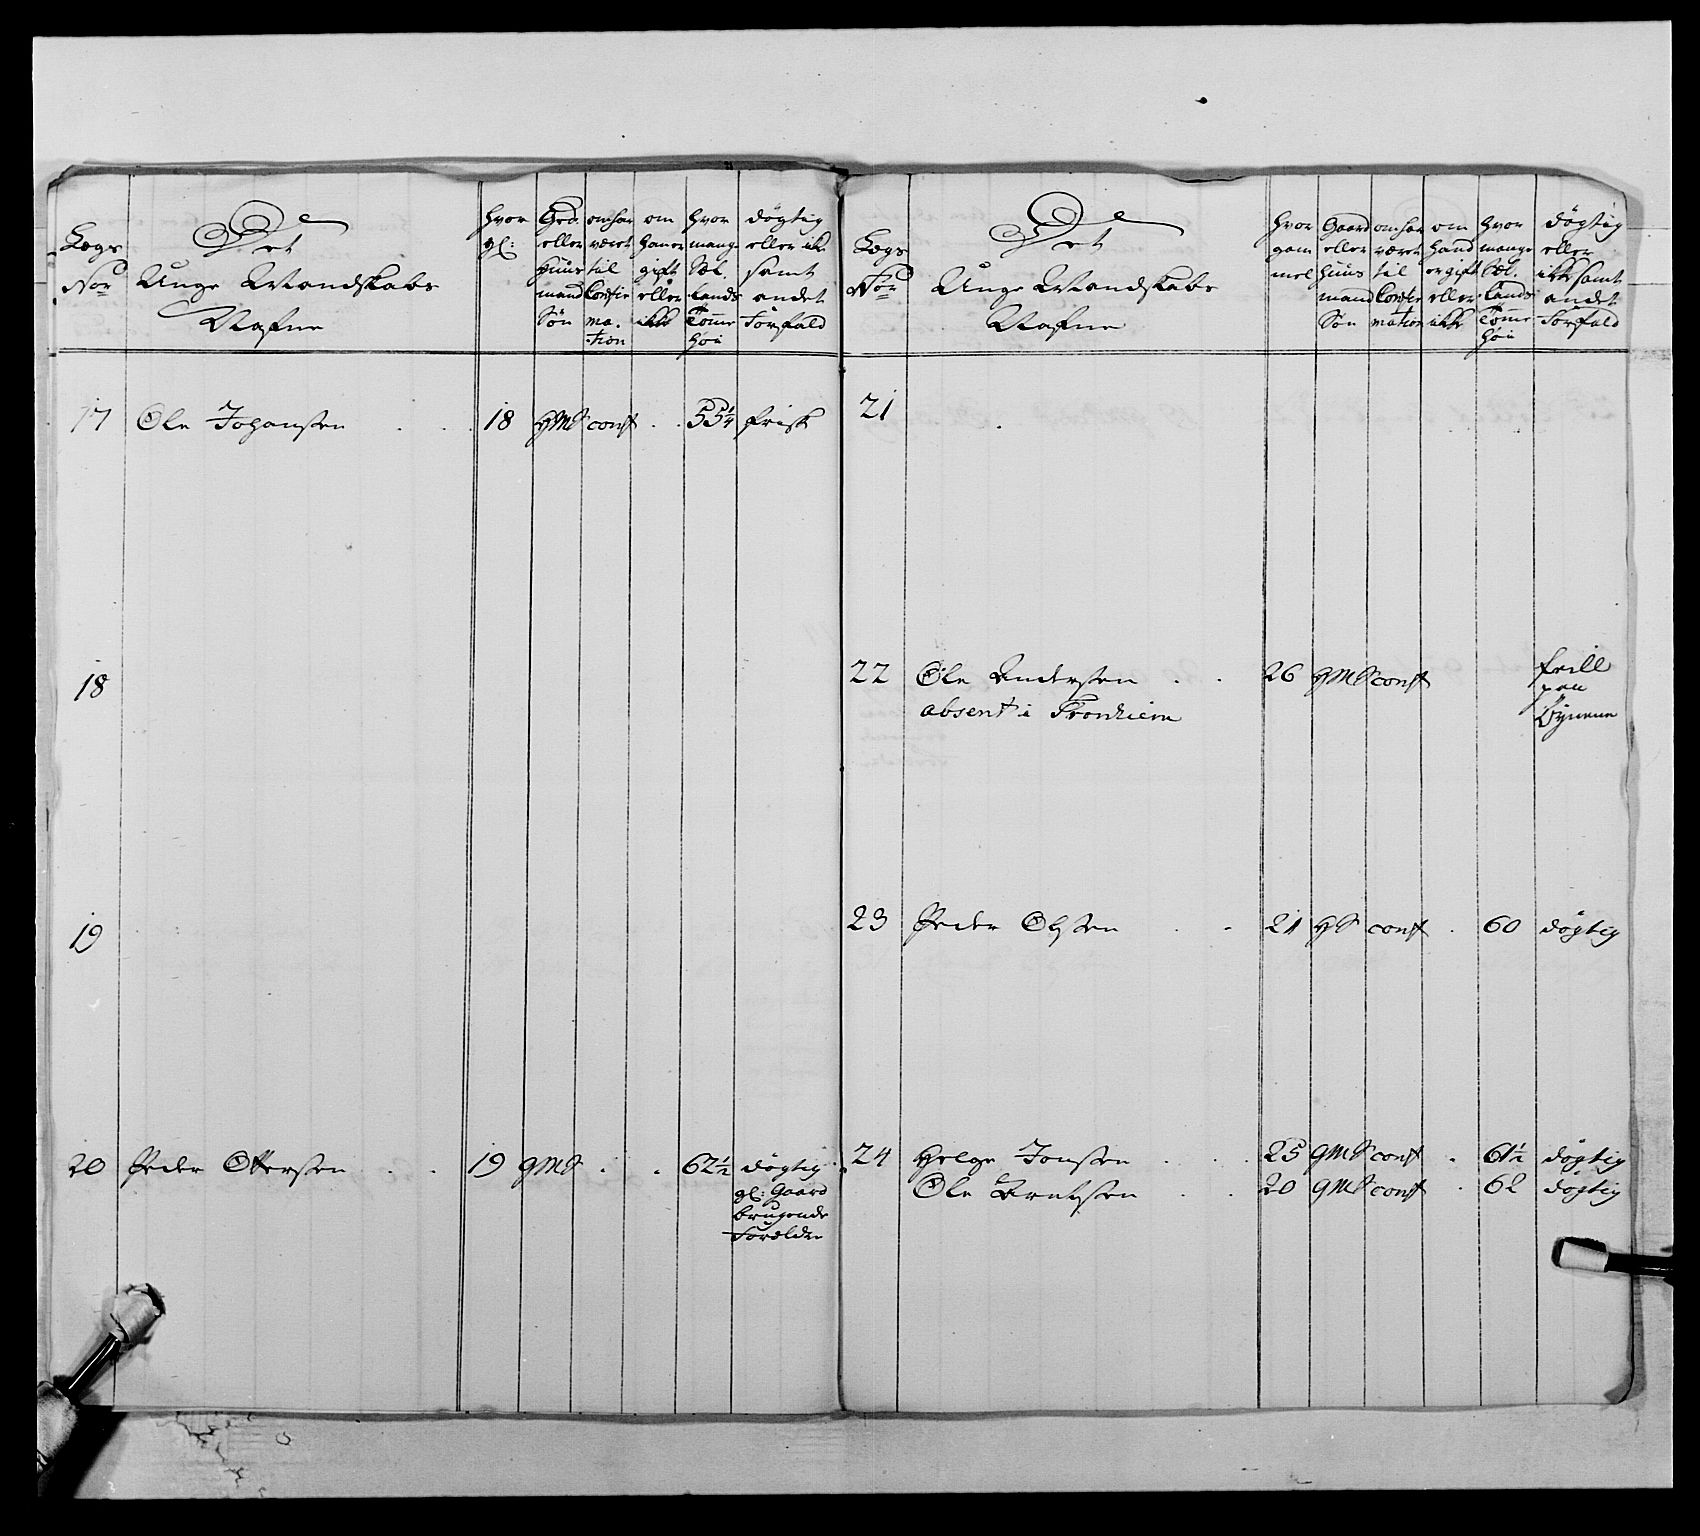 Lægs
Nor
Det
Unge Mandskabs
Nafne
hvor
gl:
Grd.
eller
huus
mand
Søn
om har
været
til
Confir
ma-
tion
om
han er
gift
eller
ikke
hvor
mange
Sæl.
Lands
Tomme
høi
døgtig
eller ikke
samt
andet
Forfald
17 Ole Johansen 18 HMS conf 55 1/4 frisk
18
19
20 Peder Ottersen 19 GMS 62 1/2 døgtig
gl: Gaard
brugende
Forældre
Lægs
Nor
Det
Unge Mandskabs
Nafne
hvor
gam
mel
Gaard
eller
huus
mand
Søn
om har
været
til
Confir
mation
om
hand
er gift
eller
ikke
hvor
mange
Sæl.
Lands
Tomme
høi
døgtig
eller
ikke samt
andet
Forfald
21
22 Ole Andersen 26 HMS conf feill
paa
Øynene
absent i Tronhiem
23 Peder Olsen 21 HS conf 60 døgtig
24 Helge Jonsen 25 GMS conf 61 1/2 døgtig
Ole Berntsen 20 GMS conf 62 døgtig